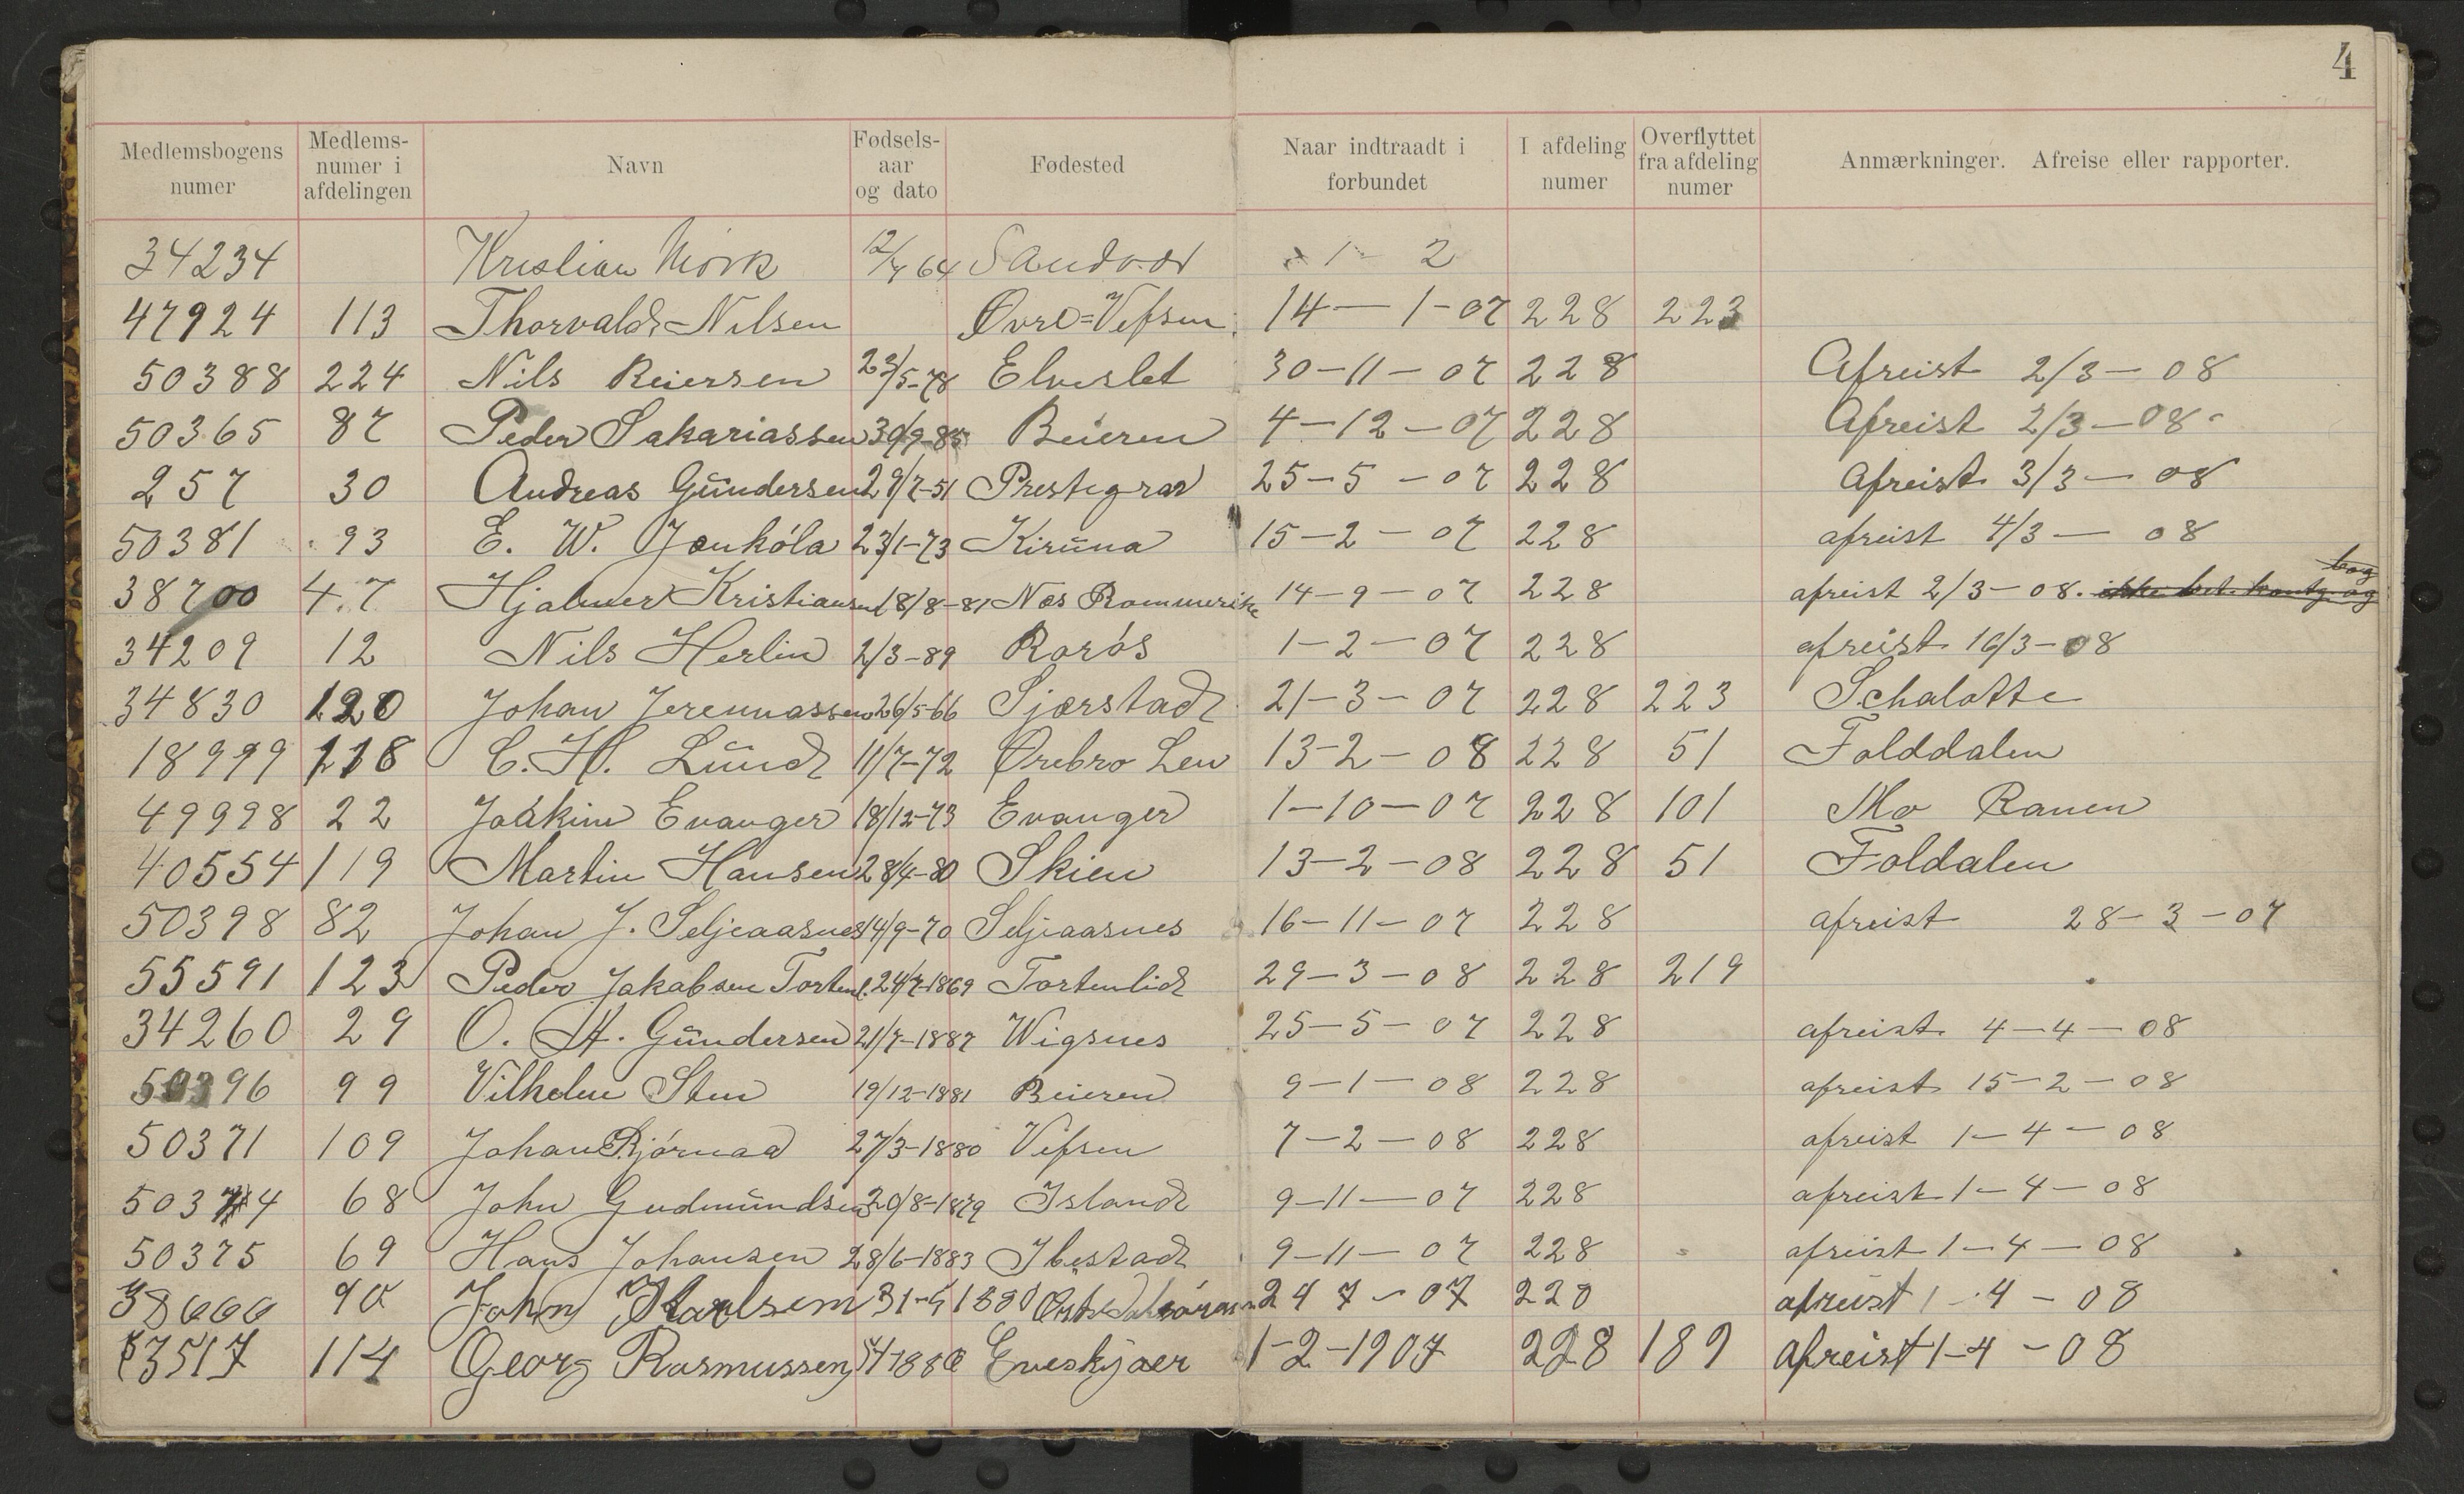 4
Medlemsbogens numer
Medlems-numer i afdelingen
Navn
Fødsels-aar og dato
Fødested
Naar indtraadt i forbundet
I afdeling numer
Overflyttet fra afdeling numer
Anmærkninger. Afreise eller rapporter.
34234 Kristian Mörk 12/7 64 1 2
47924 113 Thorvald Nilsen Øvre=Vefsen 14-1-07 228 223
50388 224 Nils Reiersen 23/5-78 Elveslet 30-11-07 228 Afreist 2/3-08
50365 87 Peder Sakariassen 30/9-85 Beieren 4-12-07 228 Afreist 2/3-08
257 30 Andreas Gündersen 29/7-51 25-5-07 228 Afreist 3/3-08
50381 93 E. W. Jonkóla 23/1-73 Kirüna 15-2-07 228 afreist 4/3-08
38700 47 Hjalmer Kristiansen 18/8-81 Nes Rommerike 14-9-07 228 afreist 2/3-08. ikke bet. kontg. og bog
34209 12 Nils Herlin 2/3-89 Rorós 1-2-07 228 afreist 16/3-08
34830 120 Johan Jeremiassen 26/5-66 Sjærstad 21-3-07 228 223 Schalotte
18999 118 C. H. Lünd 11/7-72 Ørebro Len 13-2-08 228 51 Folddalen
49998 22 Joakim Evanger 18/12-73 Evanger 1-10-07 228 101 Mo Ranen
40554 119 Martin Hansen 28/4-80 Skien 13-2-08 228 51 Foldalen
50398 82 Johan J. Seljeaasnes 14/9-70 Seljeaasnes 16-11-07 228 afreist 28-3-07
55591 123 Peder Jakabsen Tortenl. 24/7-1869 Tortenlid 29-3-08 228 219
34260 29 O. A. Gündersen 21/7-1887 Wigsnes 25-5-07 228 afreist 4-4-08
50396 99 Vilhelm Sten 19/12-1881 Beieren 9-1-08 228 afreist 15-2-08
50371 109 Johan Bjórnaa 27/3-1880 Vefsen 7-2-08 228 afreist 1-4-08
50374 68 John Gudmündsen 20/8-1879 Island 9-11-07 228 afreist 1-4-08
50375 69 Hans Johansen 28/6-1883 Ibestad 9-11-07 228 afreist 1-4-08
38666 90 John Karlsem 31-5 1880 24 7-07 228 afreist 1-4-08
114 Georg Rasmussen Eveskjær 1-2-1907 228 189 afreist 1-4-08